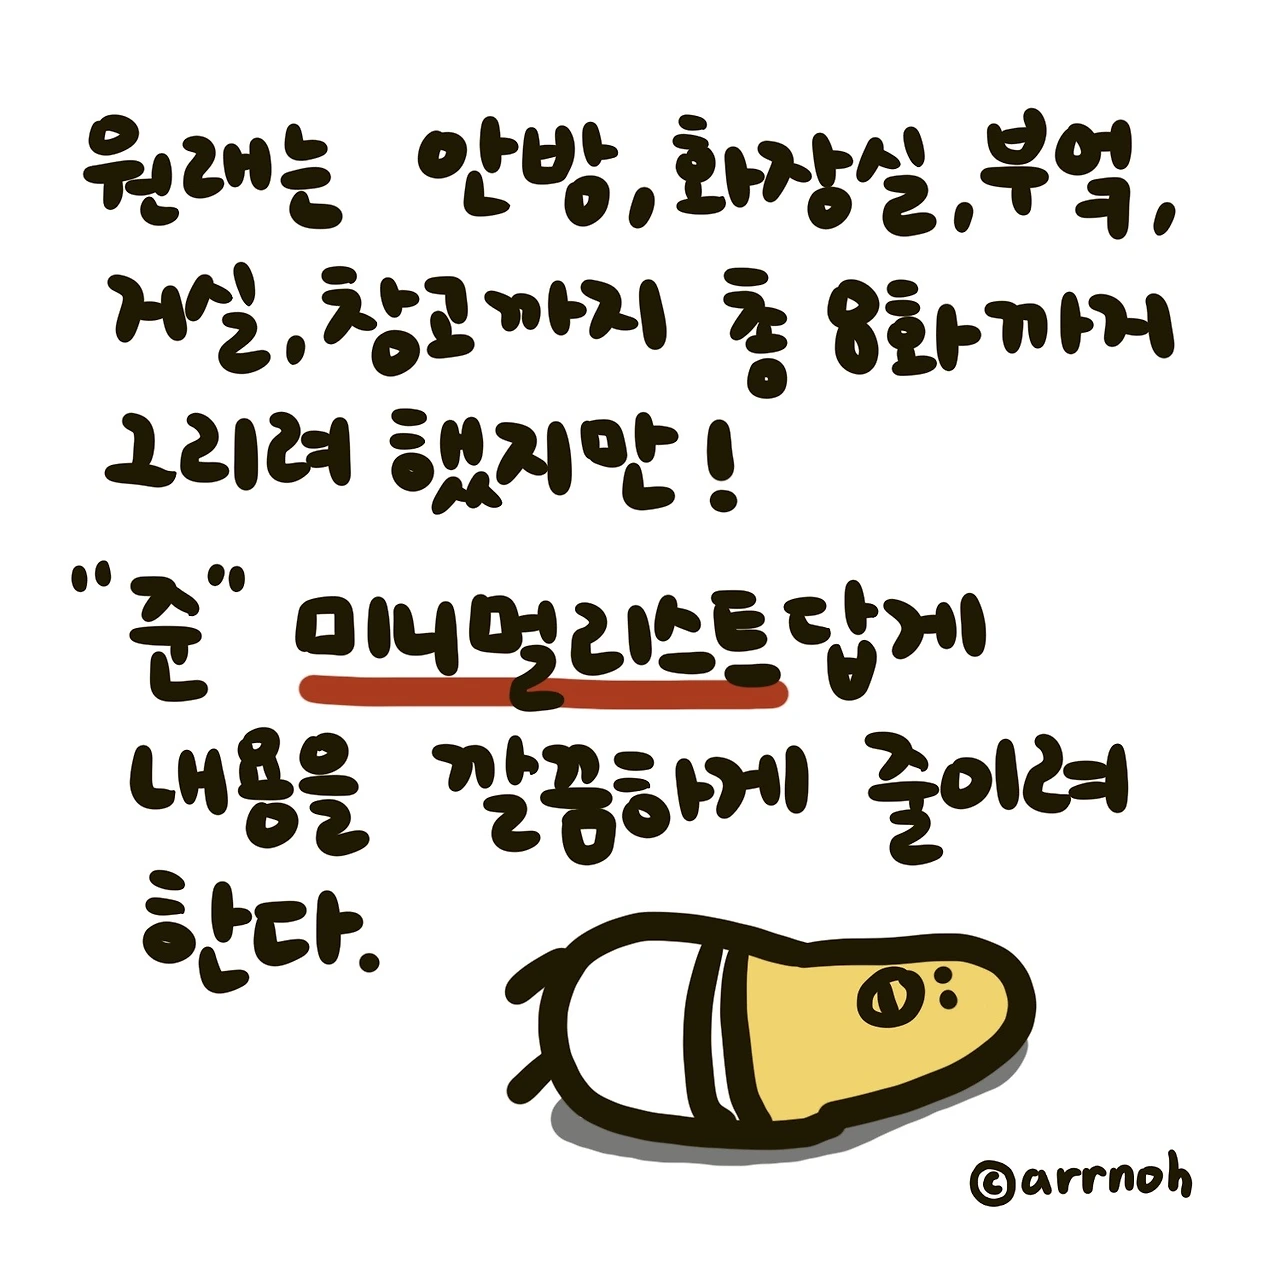 원래는 안방, 화장실, 부엌,
거실, 창고까지 총 8화까지
그리려 했지만!
"준" 미니멀리스트답게
내용을 깔끔하게 줄이려
한다.
©arrnoh